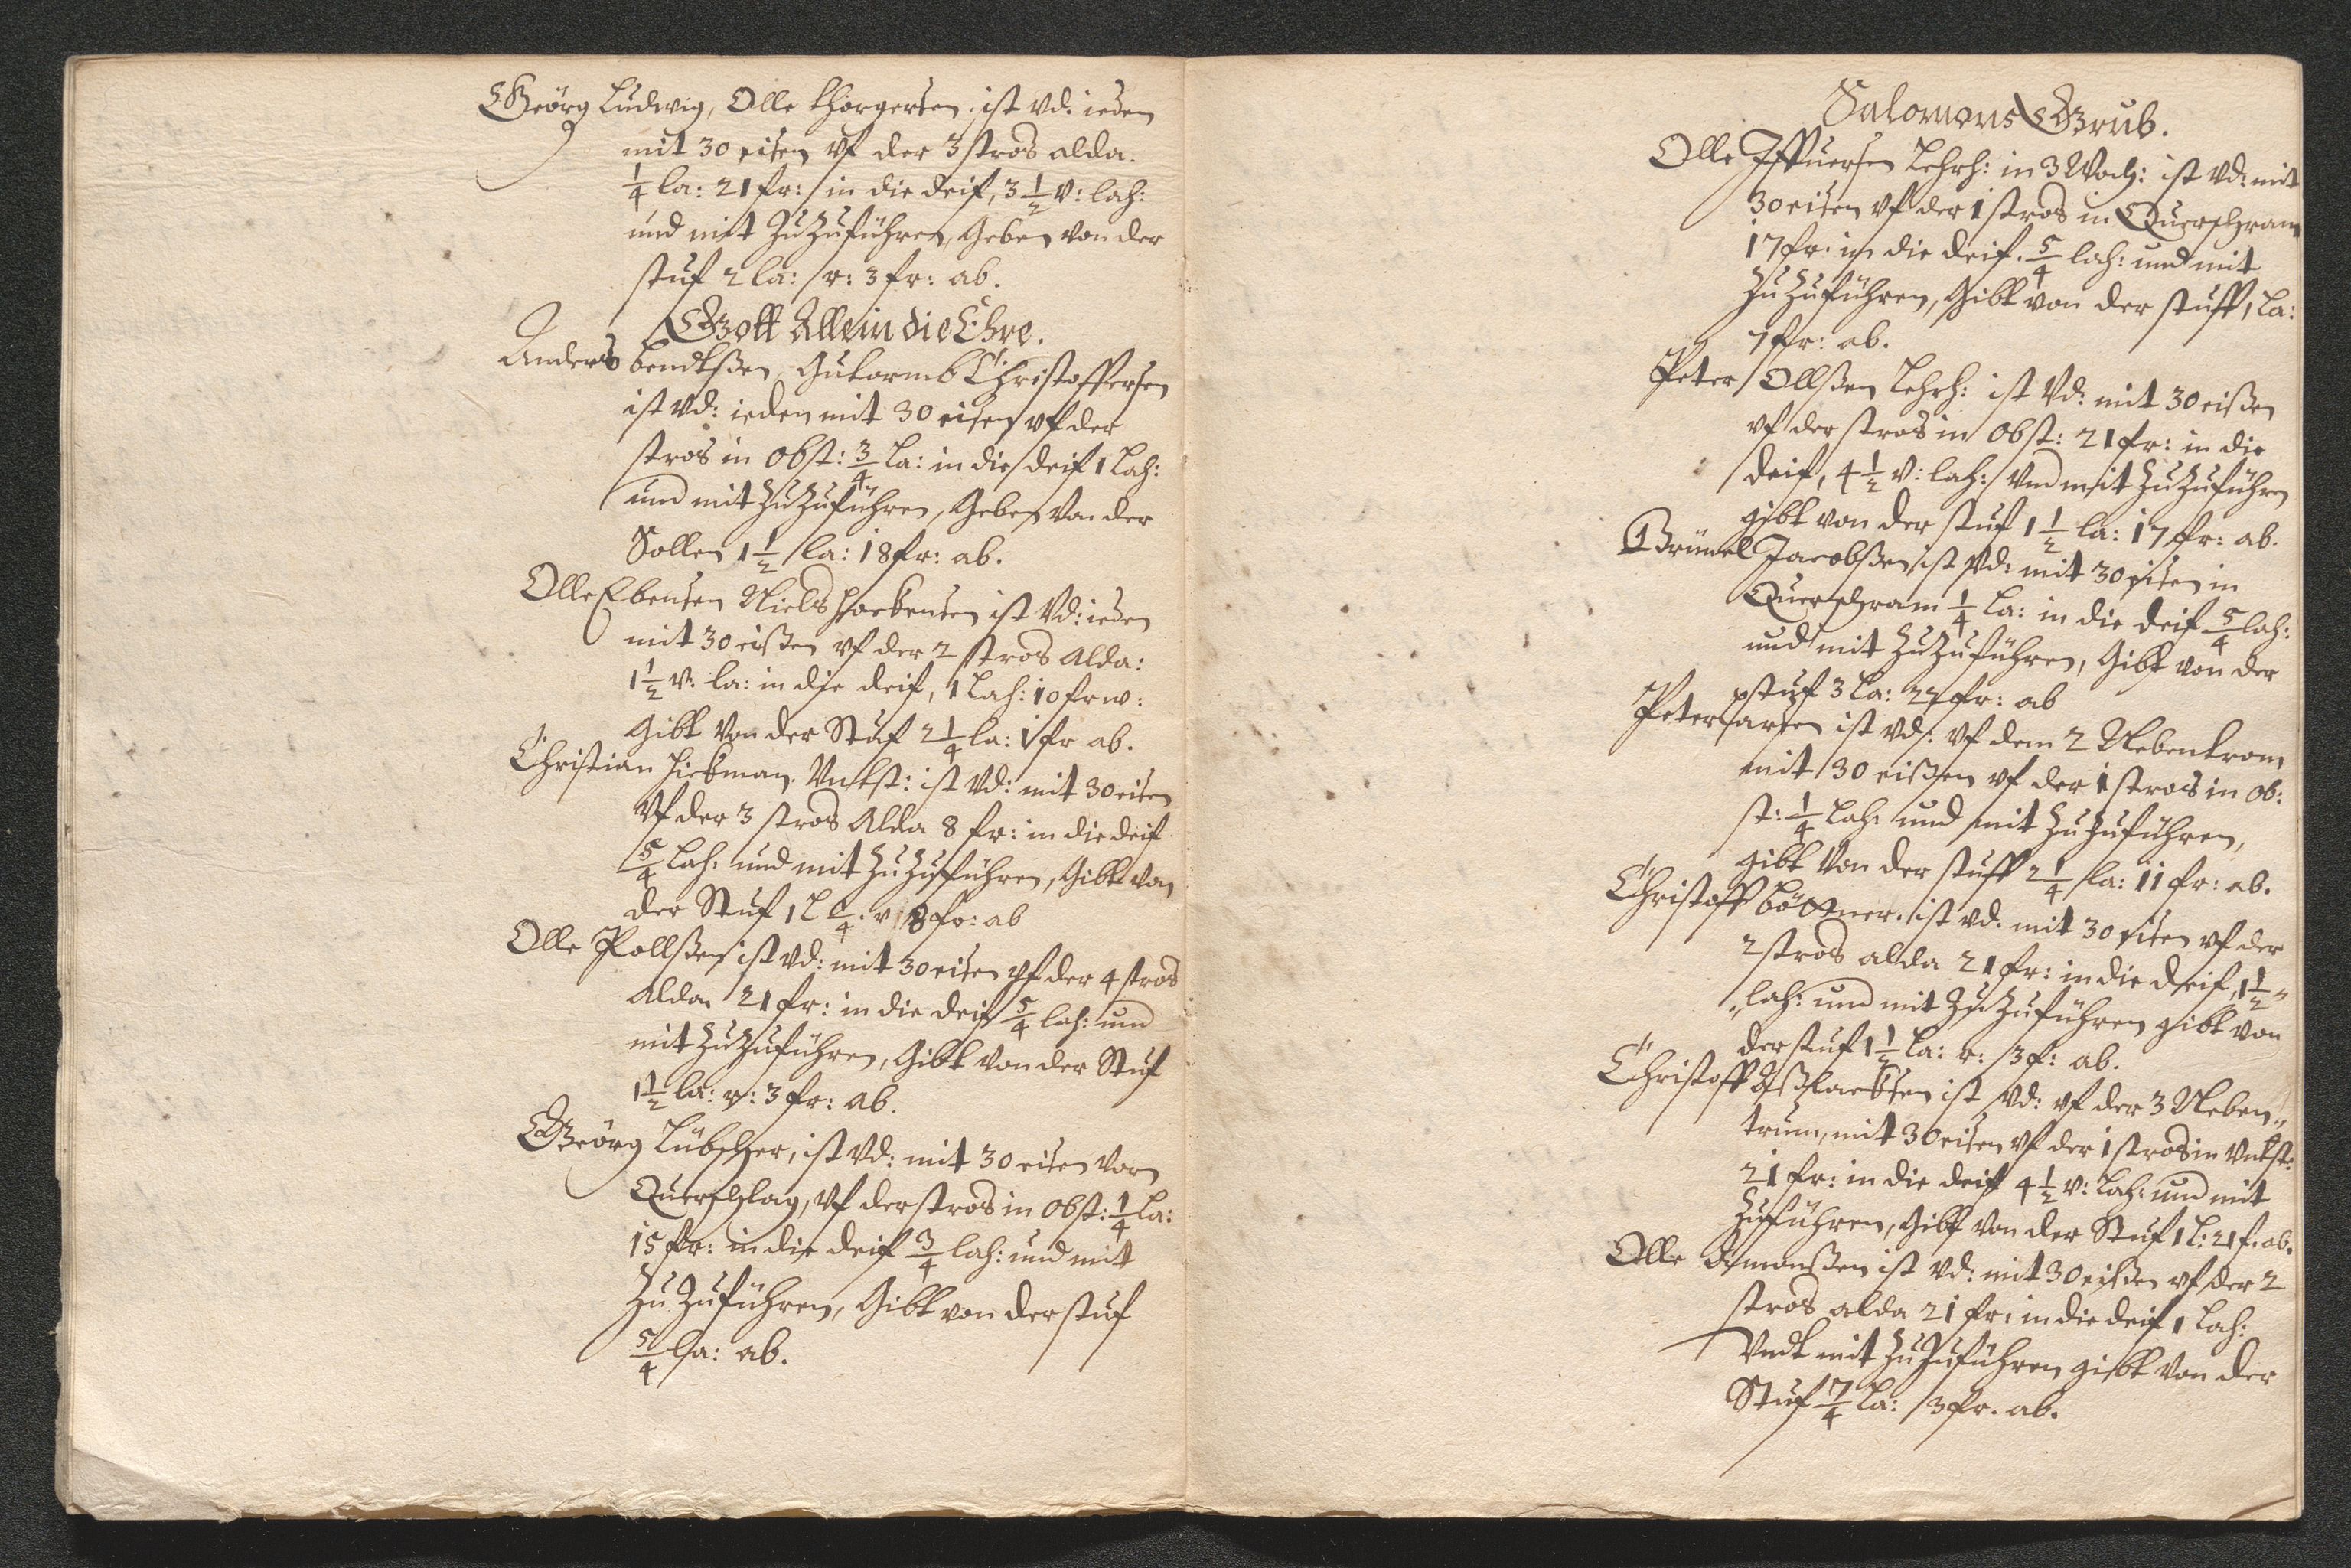 Georg Ludwig, Olle Thorgersen, ist vd: ieden
mit 30 eisen vf der 3 stros alda.
1/4 la: 21 fr: in die deif, 3 1/2 v: lah:
und mit Zuzuführen, Geben von der
stuf 2 la: r: 3 fr: ab.
Gott Allein die Ehre.
Anders bendtßen, Gutormb Christoffersen
ist vd: ieden mit 30 eisen vf der
stros in obst: 3/4 La: in die deif 1 Lah:
und mit Zuzuführen, Geben Von der
Sollen 1 1/2 la: 18 fr: ab.
Olle Ebensen Niels ist Vd: ieden
mit 30 eißen vf der 2 stros Alda:
1 1/2 v: la: in die deif, 1 Lah: 10 frw:
Gibt Von der Stuf 2 1/4 la: 1 fr ab.
Christian Hickman, Vntst: ist Vd: mit 30 eisen
Vf der 3 stros Alda 8 fr: in die deif
5/4 Lah: und mit Zuzuführen, Gibt von
der Stuf 1 L 8 fr: ab
Olle Pollßen ist vd: mit 30 eisen vf der 4 stros
Alda 21 fr: in die deif 5/4 lah: und
mit Zuzuführen, Gibt Von der Stuf
1 1/2 la: r: 3 fr: ab.
Georg Lübscher, ist Vd: mit 30 eisen Vorn
Querschlag, Vf der stros in Obst: 1/4 La:
15 fr: in die deif 3/4 lah: und mit
Zu Zuführen, Gibt von der stuf
5/4 la: ab.
Salomons Grub.
Olle Iffuersen Lehrh: in 3 Woch: ist vd: mit
30 eisen vf der 1 stros in Querschram
17 fr: in die deif. 5/4 lah: und mit
Zu Zuführen, Gibt von der stuff 1 La:
7 fr: ab.
Peter Ollßen Lehrh: ist Vd: mit 30 eißen
vf der stros in Obst: 21 fr: in die
deif, 4 1/2 v: lah: Vnd mit Zuzuführen
gibt von der stuf 1 1/2 la: 17 fr: ab.
Brünel Jacobßen ist Vd: mit 30 eisen in
Querschram 1/4 La: in die deif 5/4 lah:
und mit Zuzuführen, Gibt von der
stuf 3 La: 27 fr: ab
Peter Larsen ist vd: vf dem 2 Nebentrom
mit 30 eißen vf der 1 stros in Ob:
st: 1/4 Lah: und mit Zu Zuführen,
gibt Von der stuff 2 1/4 la: 11 fr: ab.
Christoff Böttner. ist vd. mit 30 eisen vf der
2 stros alda 21 fr: in die deif, 1 1/2 "
" lah: und mit Zu Zuführen gibt von
der stuf 1 1/2 La: r: 3 f: ab.
Christoff Aßlacksen ist Vd: vf der 3 Neben„
trum, mit 30 eisen vf der 1 stros in Vntst:
21 fr: in die deif 4 1/2 v: Lah: und mit
Zuführen, Gibt Von der Stuf 1 L: 21 f. ab.
Olle Amonßen ist vd: mit 30 eißen vf der 2
stros alda 21 fr: in die deif 1 Lah:
Vndt mit Zu Zuführen gibt Von der
Stuf 7/4 La: 3 fr. ab.